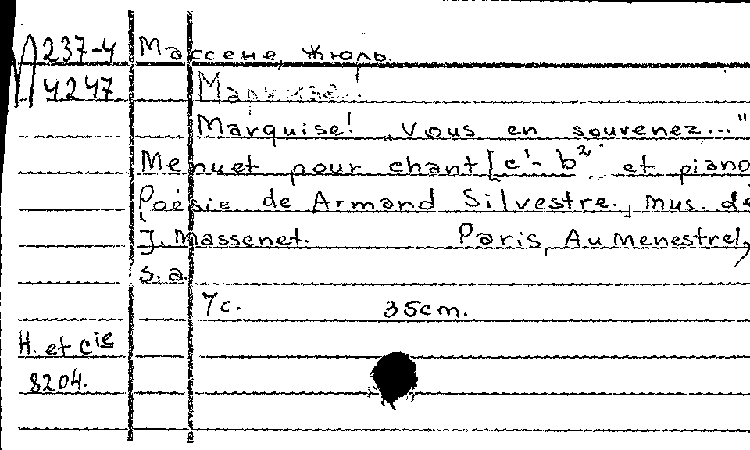 М 237-4 Массене, Жюль.
4247 Маркиза.
Marquise! „Vous en souvenez..."
Menuet pour chant [c¹- b² et piano
Poésie de Armand Silvestre, mus. de
J. Massenet. Paris, Au Menestrel,
s.a.
7c. 35cm.
H. et cie
8204.